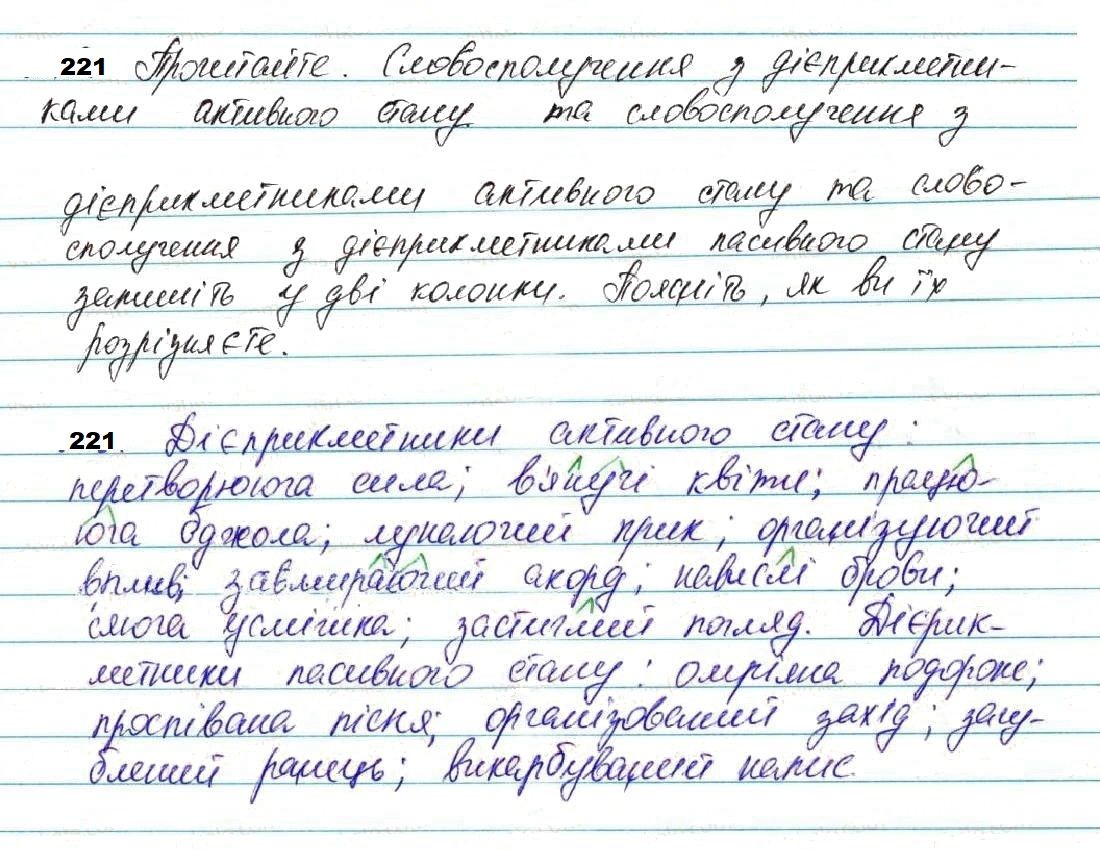 221 Прочитайте. Словосполучення з дієприкметни-
ками активного стану та словосполучення з
дієприкметниками активного стану та слово-
сполучення з дієприкметниками пасивного стану
запишіть у дві колонки. Поясніть, як ви їх
розрізняєте.
221 Дієприкметники активного стану:
перетворююча сила; в'янучі квіти; працю-
юча бджола; лунаючий крик; організуючий
вплив; завмираючий акорд; навислі брови;
сяюча усмішка; застиглий погляд. Дієрик-
метники пасивного стану: омріяна подорож;
проспівана пісня; організований захід; загу-
блений ранець; викарбуваний напис.